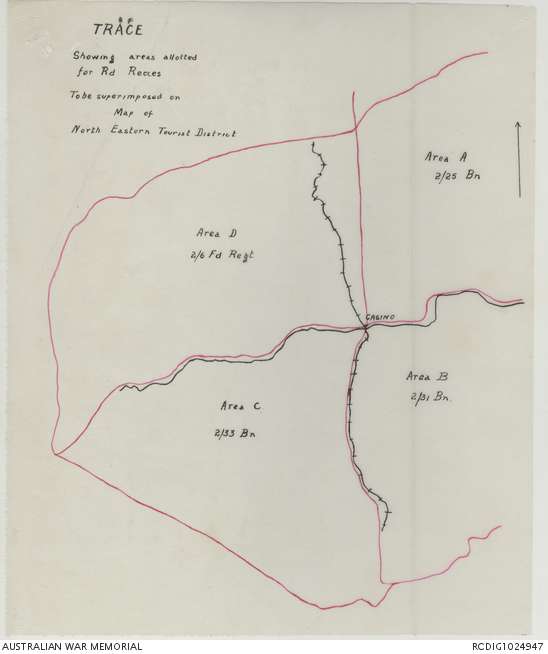 TRACE
Showing areas allotted
for Rd Recces
To be superimposed on
Map of
North Eastern Tourist District
Area A
2/25 Bn
Area D
2/6 Fd Regt
CASINO
Area B
2/31 Bn.
Area C
2/33 Bn
AUSTRALIAN WAR MEMORIAL
RCDIG1024947